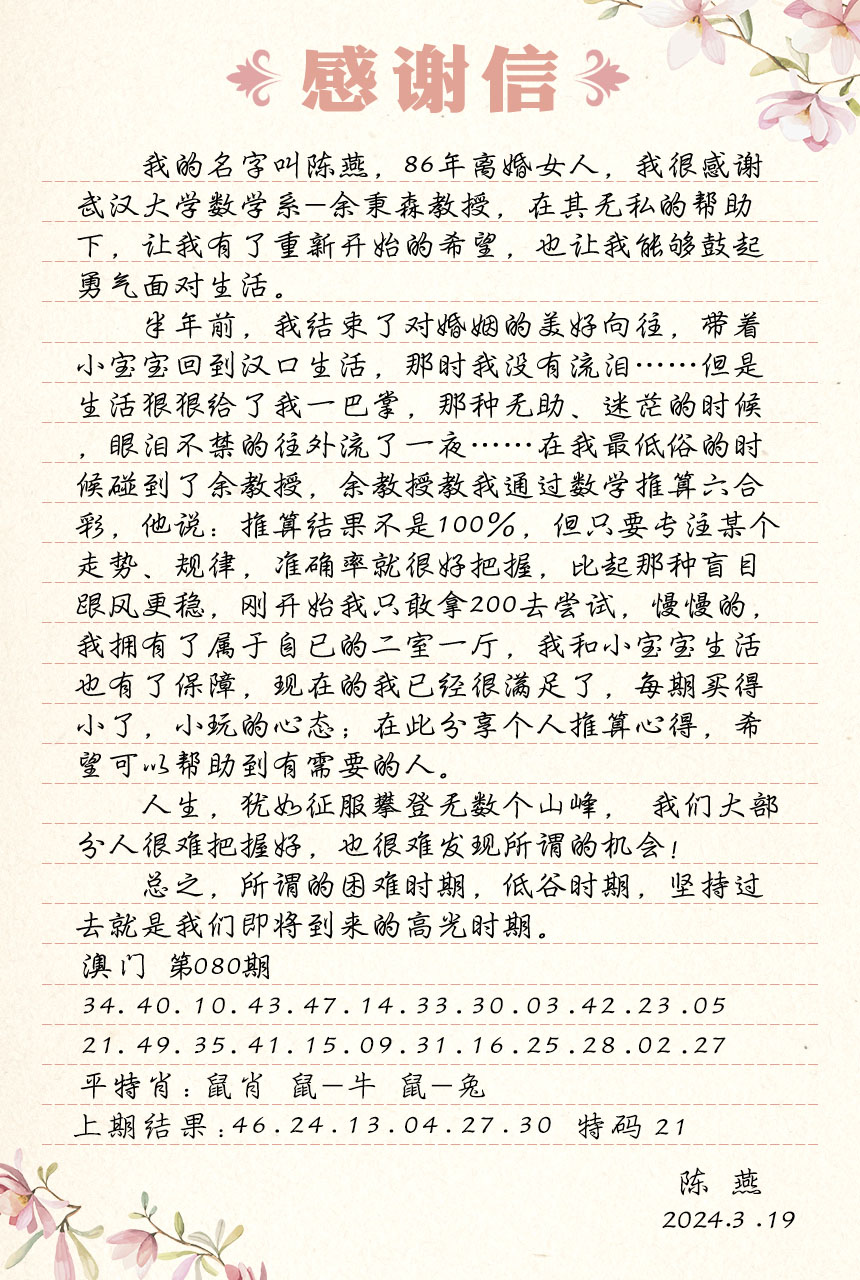 感谢信
我的名字叫陈燕，86年离婚女人，我很感谢
武汉大学数学系—余秉森教授，在其无私的帮助
下，让我有了重新开始的希望，也让我能够鼓起
勇气面对生活。
半年前，我结束了对婚姻的美好向往，带着
小宝宝回到汉口生活，那时我没有流泪……但是
生活狠狠给了我一巴掌，那种无助、迷茫的时候
，眼泪不禁的往外流了一夜……在我最低俗的时
候碰到了余教授，余教授教我通过数学推算六合
彩，他说：推算结果不是100%，但只要专注某个
走势、规律，准确率就很好把握，比起那种盲目
跟风更稳，刚开始我只敢拿200去尝试，慢慢的，
我拥有了属于自已的二室一厅，我和小宝宝生活
也有了保障，现在的我已经很满足了，每期买得
小了，小玩的心态；在此分享个人推算心得，希
望可以帮助到有需要的人。
人生，犹如征服攀登无数个山峰， 我们大部
分人很难把握好，也很难发现所谓的机会！
总之，所谓的困难时期，低谷时期，坚持过
去就是我们即将到来的高光时期。
澳门 第080期
34.40.10.43.47.14.33.30.03.42.23.05
21.49.35.41.15.09.31.16.25.28.02.27
平特肖：鼠肖 鼠—牛 鼠—兔
上期结果：46.24.13.04.27.30 特码 21
陈 燕
2024.3.19